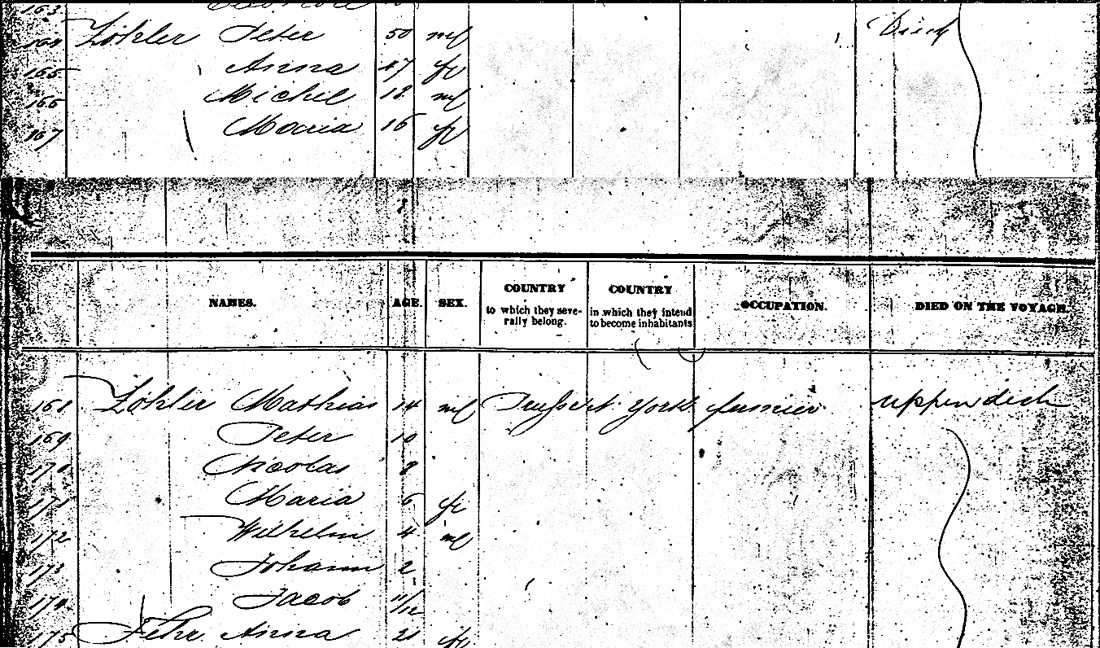 163
164 Löhler Peter 50 m
165 Anna 47 f
166 Michel 18 m
167 Maria 16 f
NAMES. AGE. SEX. COUNTRY to which they severally belong. COUNTRY in which they intend to become inhabitants OCCUPATION. DIED ON THE VOYAGE.
168 Löhler Mathias 14 m York farmer upper deck
169 Peter 10
170 Nicolas 8
171 Maria 6 f
172 Wilhelm 4 m
173 Johann 2
174 Jacob 11/12
175 Fehr Anna 21 f